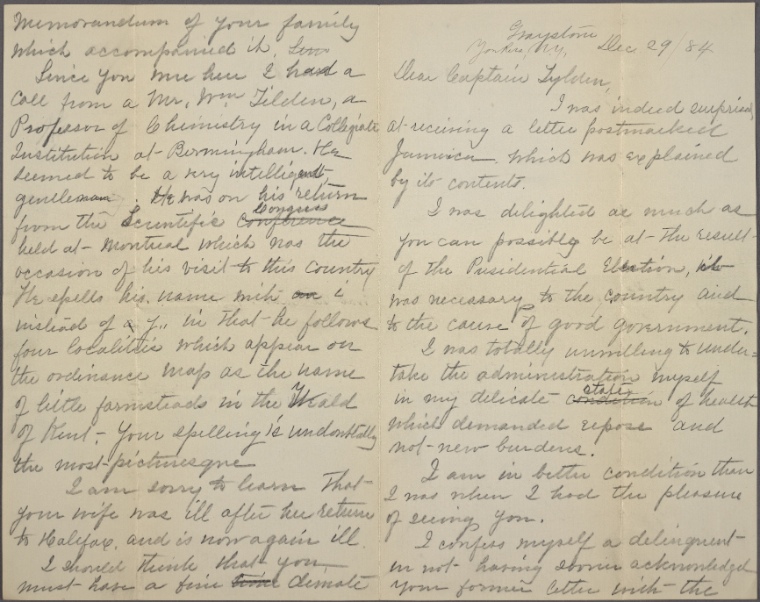 Graystone
Yonkers, N.Y. Dec 29/84
Dear Captain Tylden,
I was indeed surprised,
at receiving a letter postmarked
Jamaica, which was explained
by its contents.
I was delighted as much as
you can possibly be at the result
of the Presidential Election,
was necessary to the country and
to the cause of good government.
I was totally unwilling to under-
take the administration myself
state
in my delicate condition of health
which demanded repose and
not new burdens.
I am in better condition than
I was when I had the pleasure
of seeing you.
I confess myself a delinquent
in not having sooner acknowledged
your former letter with the
Memorandum of your family
which accompanied it.
Since you were here I had a
call from a Mr. Wm Tilden, a
Professor of Chemistry in a Collegiate
Institution at Birmingham. He
seemed to be a very intelligent
gentleman. He was on his return
Congress
from the Scientific Conference
held at Montreal which was the
occasion of his visit to this Country
He spells his name with an i
instead of a y., in that he follows
four localities which appear on
the ordinance map as the name
of little farmsteads in the Weald
of Kent. Your spelling is undoubtedly
the most picturesque
I am sorry to learn that
your wife was ill after her return
to Halifax, and is now again ill.
I should think that you
must have a fine time climate